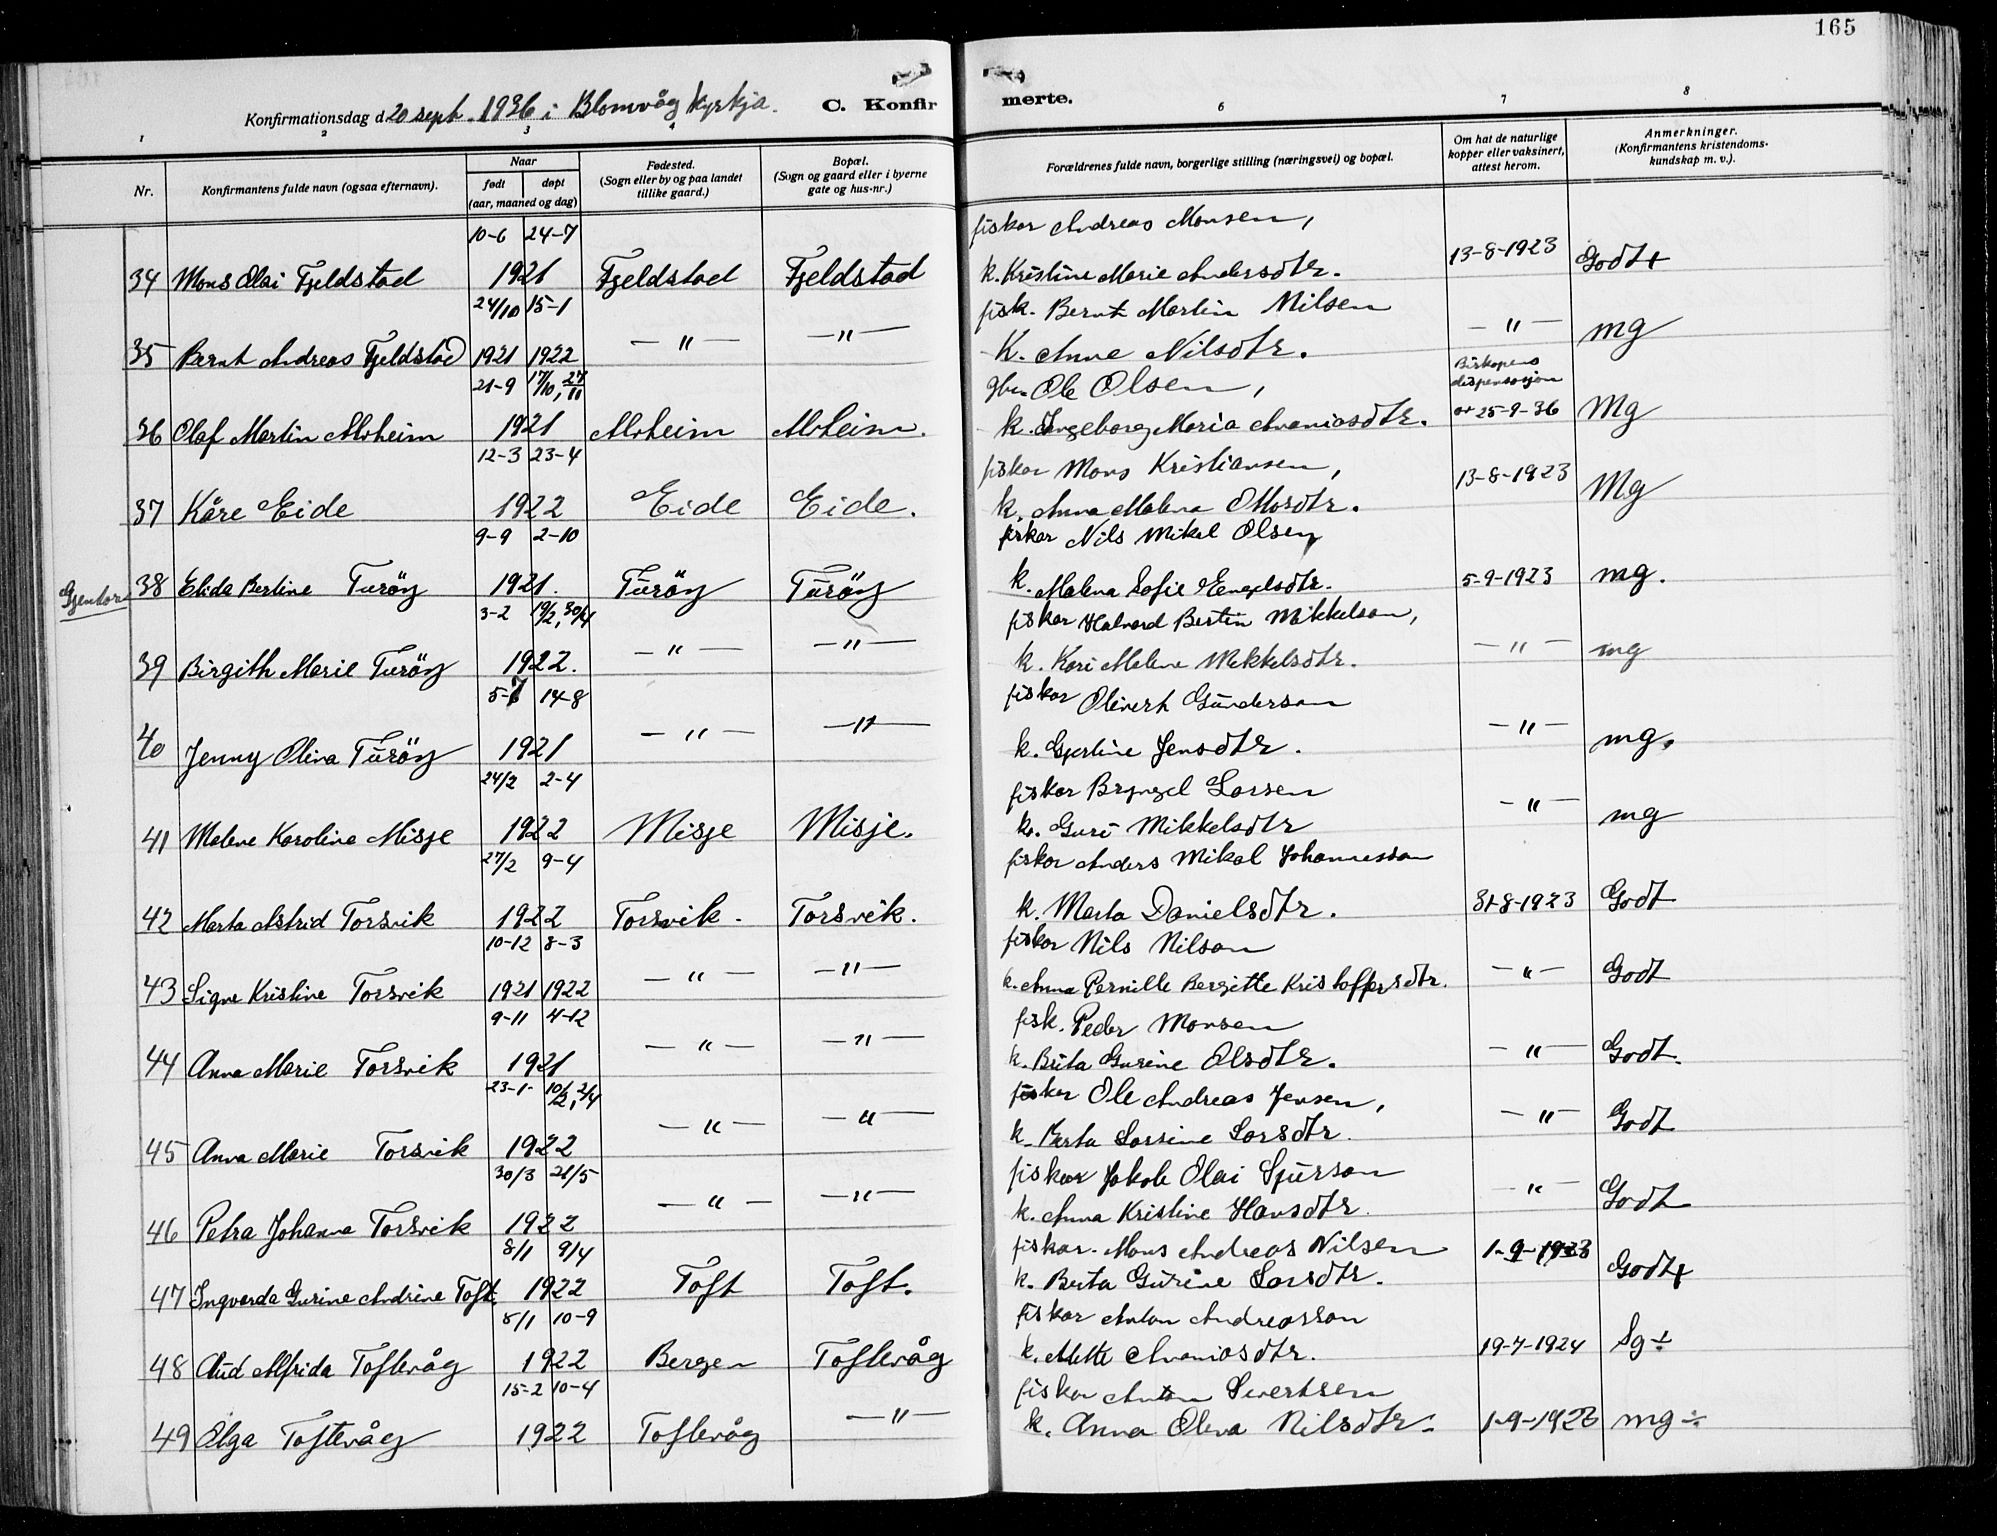 165
Konfirmationsdag d 20 sept. 1936 i Blomvåg kyrkja. C. Konfirmerte.
1 2 3 4 6 7 8
Nr. Konfirmantens fulde navn (ogsaa efternavn). Naar født døpt (aar, maaned og dag) Fødested. (Sogn eller by og paa landet tillike gaard.) Bopæl. (Sogn og gaard eller i byerne gate og hus-nr.) Forældrenes fulde navn, borgerlige stilling (næringsvei) og bopæl. Om hat de naturlige kopper eller vaksinert, attest herom. Anmerkninger. (Konfirmantens kristendomskundskap m. v.).
10-6 24-7 fiskar Andreas Monsen,
34 Mons Olai Fjeldstad 1921 Fjeldstad Fjeldstad k. Kristine Marie Andersdtr. 13-8-1923 Godt+
24/10 15-1 fisk. Bernt Martin Nilsen
35 Bernt Andreas Fjeldstad 1921 1922 — " — — " — K. Anne Nilsdtr. — " — mg
21-9 17/10, 27/11 gbr. Ole Olsen, Biskopens dispensasjon
36 Olaf Martin Alvheim 1921 Alvheim Alvheim. k. Ingeborg Maria Ananiasdtr. av 25-9-36 Mg
12-3 23-4 fiskar Mons Kristiansen,
37 Kåre Eide 1922 Eide Eide. k. Anna Malena Olsdtr. 13-8-1923 Mg
9-9 2-10 fiskar Nils Mikal Olsen
Gjentor
38 Elida Bertine Turöy 1921. Turöy Turöy k. Malena Sofie Engelsdtr. 5-9-1923 mg.
3-2 19/2, 30/4 fiskar Halvard Bertin Mikkelson,
39 Birgith Marie Turöy 1922. — " — — " — k. Kari Malene Mikkelsdtr. — " — mg
5-7 14-8 fiskar Olinert Gunderson
40 Jenny Olina Turöy 1921 — " — — " — k. Gjertine Jensdtr. — " — mg.
24/2 2-4 fiskar Bryngel Larsen
41 Malene Karoline Misje 1922 Misje Misje. k. Guri Mikkelsdtr — " — mg
27/2 9-4 fiskar Anders Mikal Johannesson
42 Marta Astrid Torsvik 1922 Torsvik. Torsvik. k. Marta Danielsdtr. 31-8-1923 Godt
10-12 8-3 fiskar Nils Nilson
43 Signe Kristine Torsvik 1921 1922 — " — — " — k. Anna Pernille Bergitte Kristoffersdtr. — " — Godt
9-11 4-12 fisk. Peder Monsen
44 Anna Marie Torsvik 1921 — " — — " — k. Brita Gurine Olsdtr. — " — Godt.
23-1- 10/2, 2/4 fisker Ole Andreas Jensen,
45 Anna Marie Torsvik 1922 — " — — " — k. Berta Larsine Larsdtr. — " — Godt
30/3 21/5 fiskar Jakob Olai Sjurson
46 Petra Johanna Torsvik 1922 — " — — " — k. Anna Kristine Hansdtr. — " — Godt
8/1 9/4 fiskar. Mons Andreas Nilsen 1-9-1923
47 Ingvarda Gurine Andrine Toft. 1922 Toft Toft. k. Berta Gurine Larsdtr. Godt+
8/1 10-9 fiskar Anton Andreasson
48 Aud Alfrida Toftevåg 1922 Bergen Toftevåg k. Mette Ananiasdtr. 19-7-1924 Sg÷
15-2 10-4 fiskar Anton Sivertsen
49 Olga Toftevåg 1922 Toftevåg — " — k. Anna Oleva Nilsdtr. 1-9-1923 mg÷